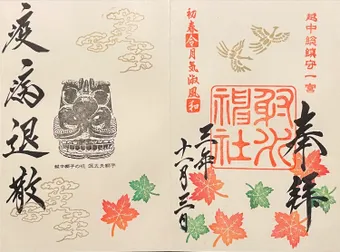 越中総鎮守一宮
奉拝
射水神社
初春令月氣淑風和
三年
十一月三日
疫病退散